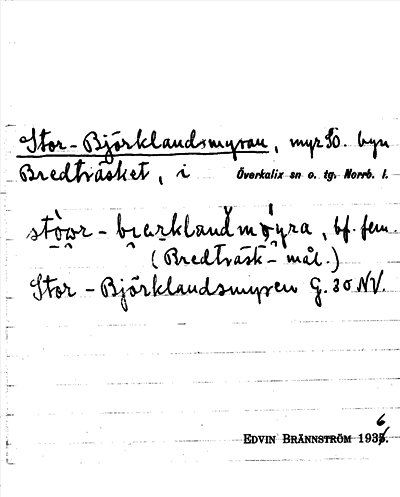 Stor-Björklandsmyran, myr SO. byn
Bredträsket, i Överkalix sn o. tg. Norrb. l.
stòwr-biarklandmỳra, bf. fem.
(Bredträsk-mål.)
Stor-Björklandsmyren G. 30 NV.
EDVIN BRÄNNSTRÖM 1936.